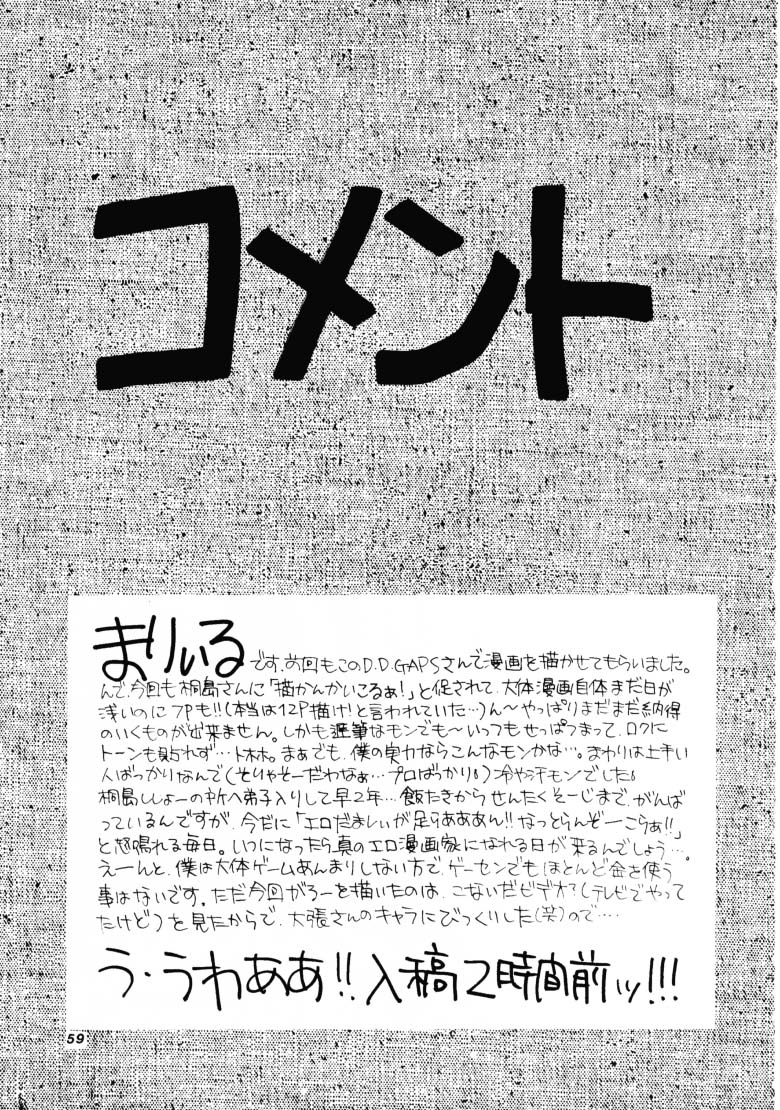 コメント
まりぃるです。前回もこのD.D.GAPSさんで漫画を描かせてもらいました。
んで、今回も桐島さんに「描かんかいこるぁ!」と促されて、大体漫画自体まだ日が
浅いのに7Pも!!(本当は12P描け!と言われていた…)ん~やっぱりまだまだ納得
のいくものが出来ません。しかも遅筆なモンでも~いっつもせっぱつまって、ロクに
トーンも貼れず…トホホ。まぁでも、僕の実力ならこんなモンかな…。まわりは上手い
人ばっかりなんで(そりゃそーだわなぁ…プロばっかり)冷や汗モンでした
桐島ししょーの所へ弟子入りして早2年…飯たきからせんたくそーじまで、がんば
っているんですが、今だに「エロだましぃが足りああぁん!!なっとらんぞーこらぁ!!」
と怒鳴れる毎日。いつになったら真のエロ漫画家になれる日が来るんでしょう…。
えーんと、僕は大体ゲームあんまりしない方で、ゲーセンでもほとんど金を使う
事はないです。ただ今回がろーを描いたのは、こないだビデオ?(テレビでやって
たけど)を見たからで、大張さんのキャラにびっくりした(笑)ので‥‥
う・うわああ!!入稿2時間前ッ!!!
59